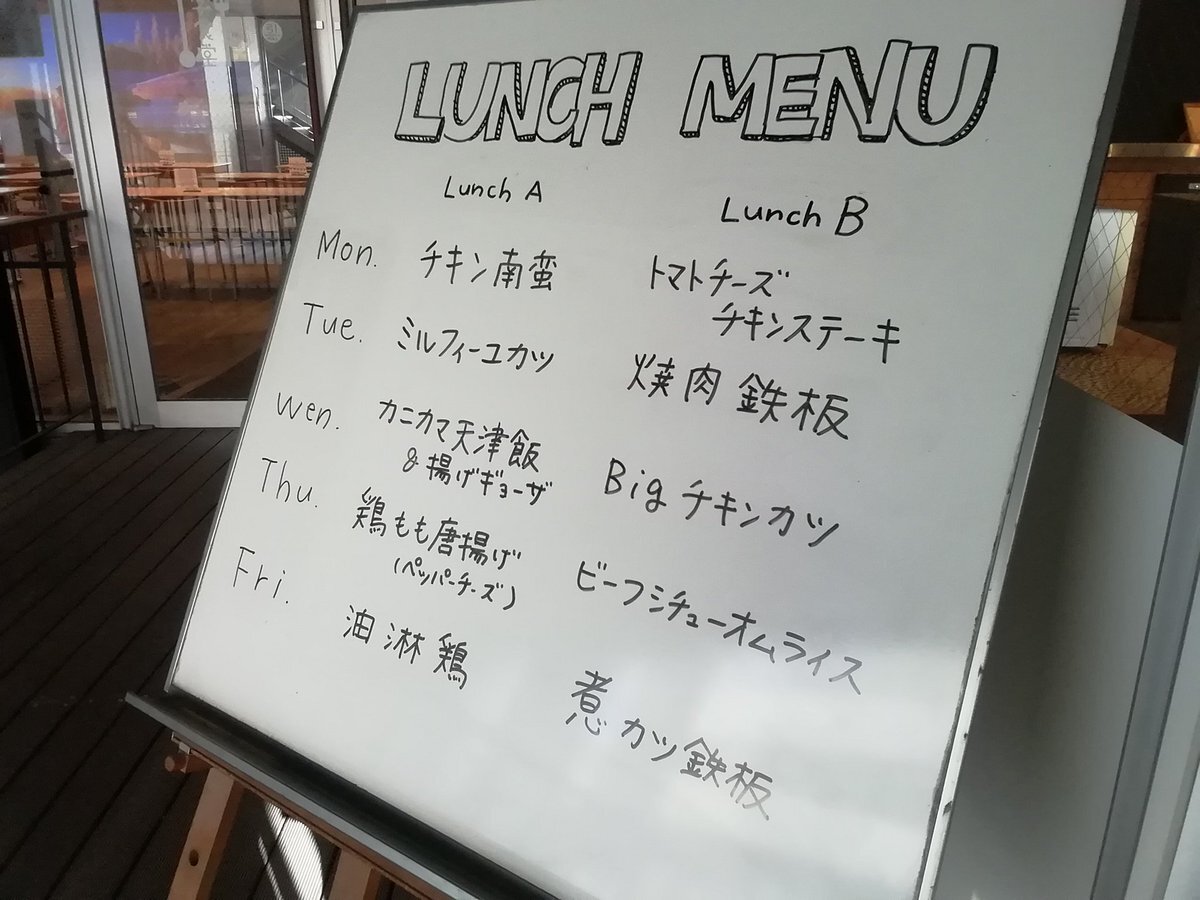 LUNCH MENU
Lunch A Lunch B
Mon. チキン南蛮 トマトチーズ
チキンステーキ
Tue. ミルフィーユカツ 焼肉鉄板
Wen. カニカマ天津飯
&揚げギョーザ Big チキンカツ
Thu. 鶏もも唐揚げ
(ペッパーチーズ) ビーフシチューオムライス
Fri. 油淋鶏 煮カツ鉄板